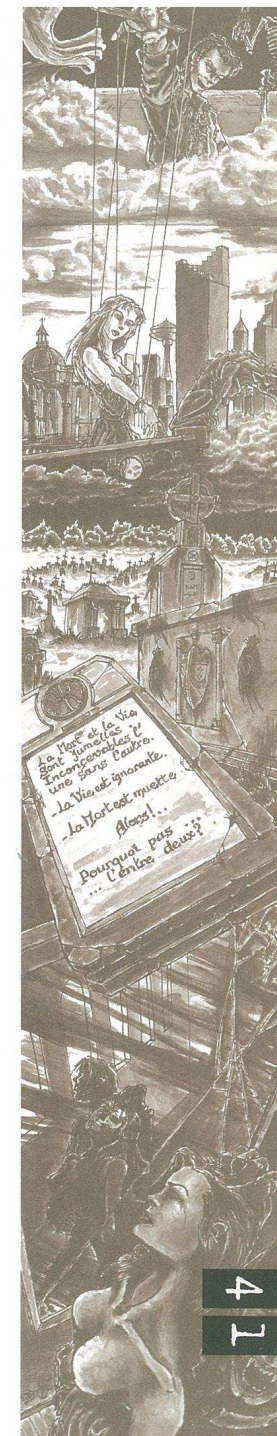 La Mort et la Vie
sont jumelles
Inconcevables l'
une sans l'autre.
La Vie est ignorante.
La Mort est muette
Alors!...
Pourquoi pas ...
... l'entre deux?
41